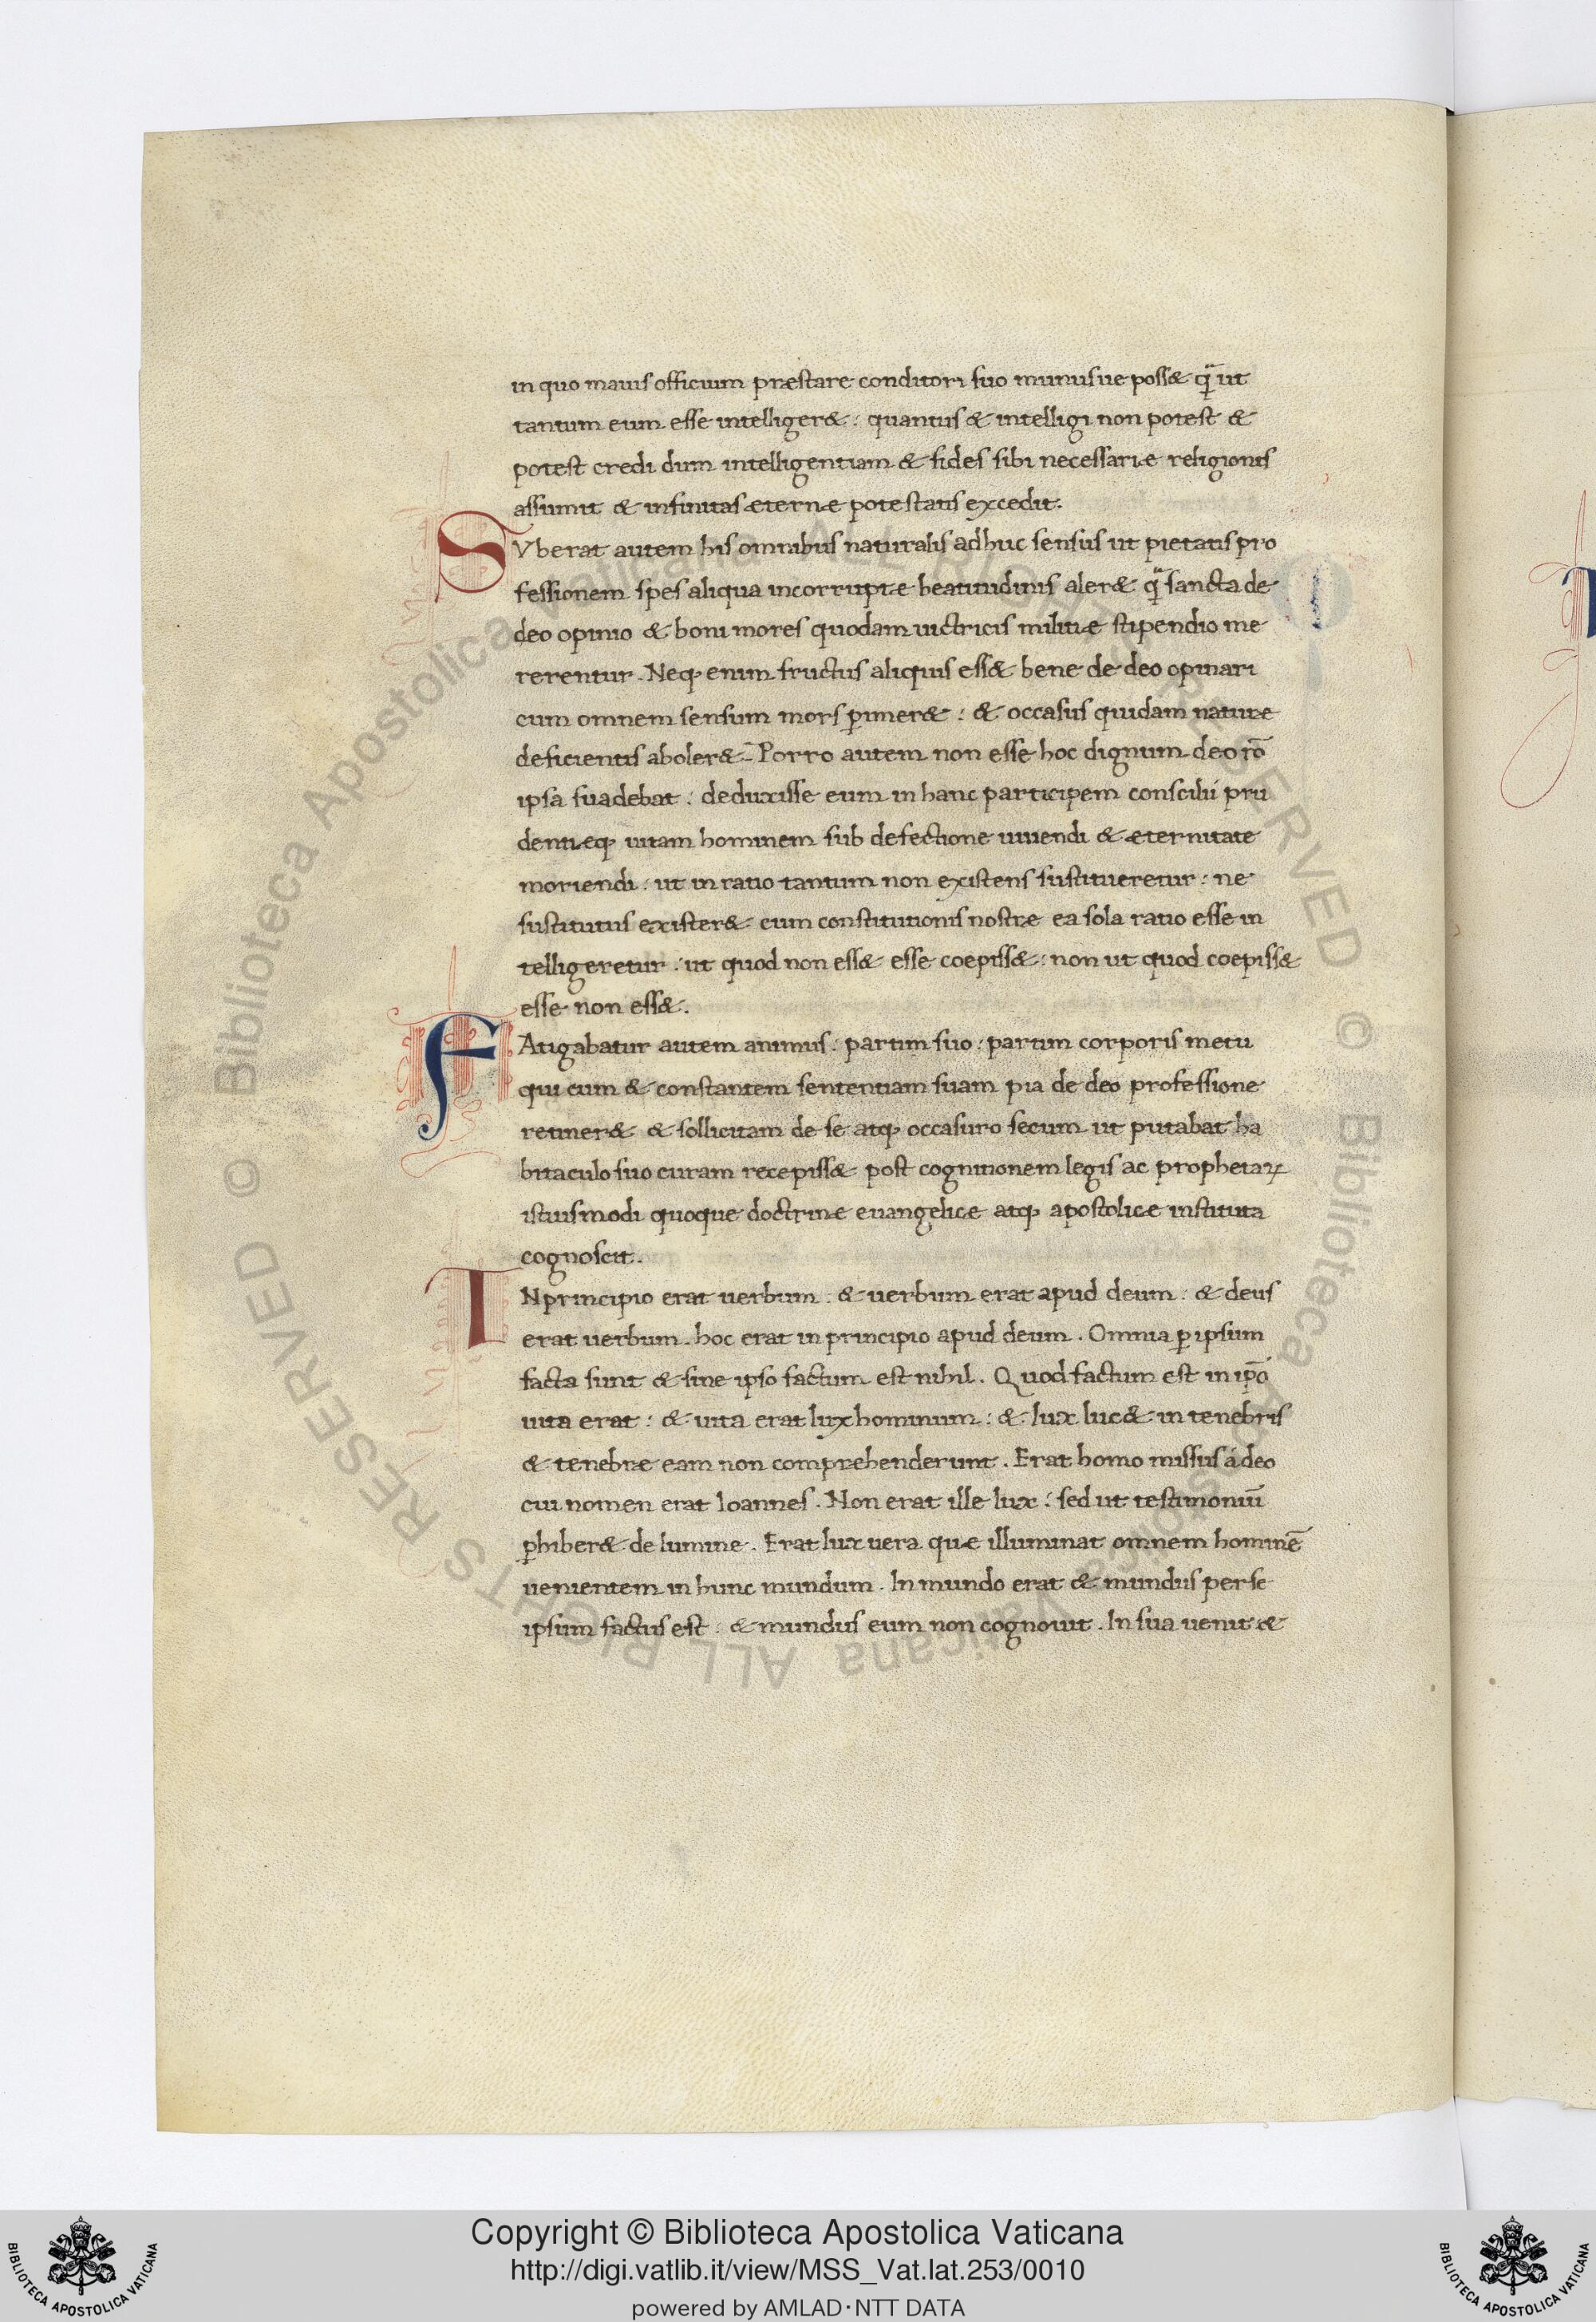 in quo maius officium præstare conditori suo munusue poss& qͣ ut
tantum eum esse intelliger&: quantus & intelligi non potest &
potest credi dum intelligentiam & fides sibi necessariæ religionis
assumit & infinitas æternæ potestatis excedit.
SVberat autem his omnibus naturalis adhuc sensus ut pietatis pro
fessionem spes aliqua incorruptæ beatitudinis aler& qͣ sancta de
deo opinio & boni mores quodam uictricis militiæ stipendio me
rerentur. Neqꝫ enim fructus aliquis ess& bene de deo opinari
cum omnem sensum mors ꝑimer&: & occasus quidam naturæ
deficientis aboler&. Porro autem non esse hoc dignum deo rō
ipsa suadebat: deduxisse eum in hanc participem conscilii pru
dentiæqꝫ uitam hominem sub defectione uiuendi & æternitate
moriendi: ut in ratio tantum non existens sustitueretur: ne
sustitutus exister& cum constitutionis nostræ ea sola ratio esse in
telligeretur: ut quod non ess& esse coepiss&: non ut quod coepiss&
esse non ess&.
FAtigabatur autem animus: partim suo: partim corporis metu
qui cum & constantem sententiam suam pia de deo professione
retiner& & sollicitam de se atqꝫ occasuro secum ut putabat ha
bitaculo suo curam recepiss& post cognitionem legis ac prophetaꝝ
istiusmodi quoque doctrinæ euangelicæ atqꝫ apostolicæ instituta
cognoscit.
INprincipio erat uerbum: & uerbum erat apud deum: & deus
erat uerbum. hoc erat in principio apud deum. Omnia ꝑ ipsum
facta sunt & sine ipso factum est nihil. Quod factum est in ip̄o
uita erat: & uita erat lux hominum: & lux luc& in tenebris
& tenebræ eam non comprehenderunt. Erat homo missus a deo
cui nomen erat Ioannes. Non erat ille lux: sed ut testimoniū
ꝑhiber& de lumine. Erat lux uera quæ illuminat omnem hominē
uenientem in hunc mundum. In mundo erat & mundus per se
ipsum factus est: & mundus eum non cognouit. In sua uenit &
© Biblioteca Apostolica Vaticana ALL RIGHTS RESERVED
© Biblioteca Apostolica Vaticana ALL RIGHTS RESERVED
Copyright © Biblioteca Apostolica Vaticana
http://digi.vatlib.it/view/MSS_Vat.lat.253/0010
powered by AMLAD·NTT DATA
BIBLIOTECA APOSTOLICA VATICANA
BIBLIOTECA APOSTOLICA VATICANA